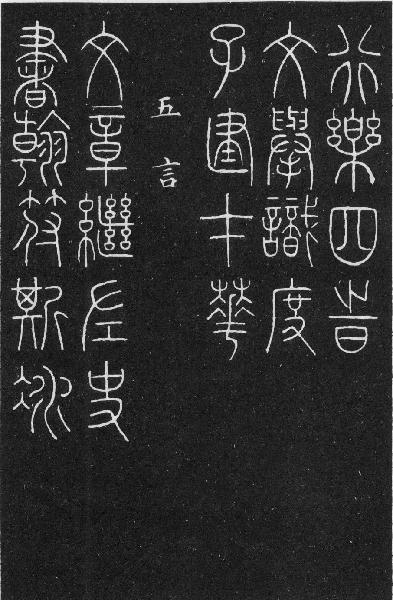 行樂四旹
文學識度
子建才華
五言
文章繼左史
書翰斯冰